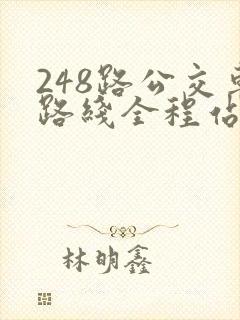 248路公交
路綫全程
林明鑫